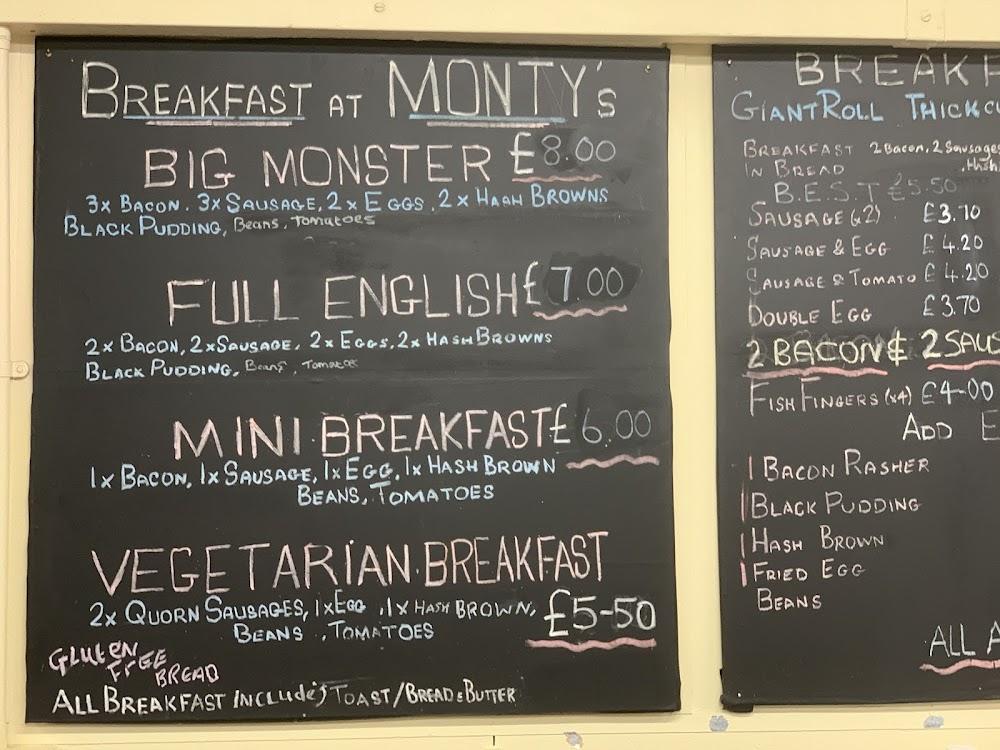 BREAKFAST AT MONTY'S
BIG MONSTER £8.00
3x BACON. 3x SAUSAGE, 2x EGGS, 2x HASH BROWNS
BLACK PUDDING, Beans, Tomatoes
FULL ENGLISH £7.00
2x BACON, 2xSAUSAGE, 2x EGGS, 2x HASH BROWNS
BLACK PUDDING, Beans, Tomatoes
MINI BREAKFAST £6.00
1x BACON, 1x SAUSAGE, 1x EGG, 1x HASH BROWN
BEANS, TOMATOES
VEGETARIAN BREAKFAST
2x QUORN SAUSAGES, 1xEGG, 1x HASH BROWN,
BEANS, TOMATOES £5-50
GLUTEN
FREE
BREAD
ALL BREAKFAST INCLUDES TOAST/BREAD & BUTTER
BREAKF
GIANT ROLL THICK
BREAKFAST 2 Bacon, 2 Sausages
IN BREAD
B.E.S.T £5.50
SAUSAGE (x2) £3.70
SAUSAGE & EGG £4.20
SAUSAGE & TOMATO £4.20
DOUBLE EGG £3.70
2 BACON & 2 SAUS
FISH FINGERS (x4) £4-00
ADD E
1 BACON RASHER
1 BLACK PUDDING
1 HASH BROWN
1 FRIED EGG
BEANS
ALL A